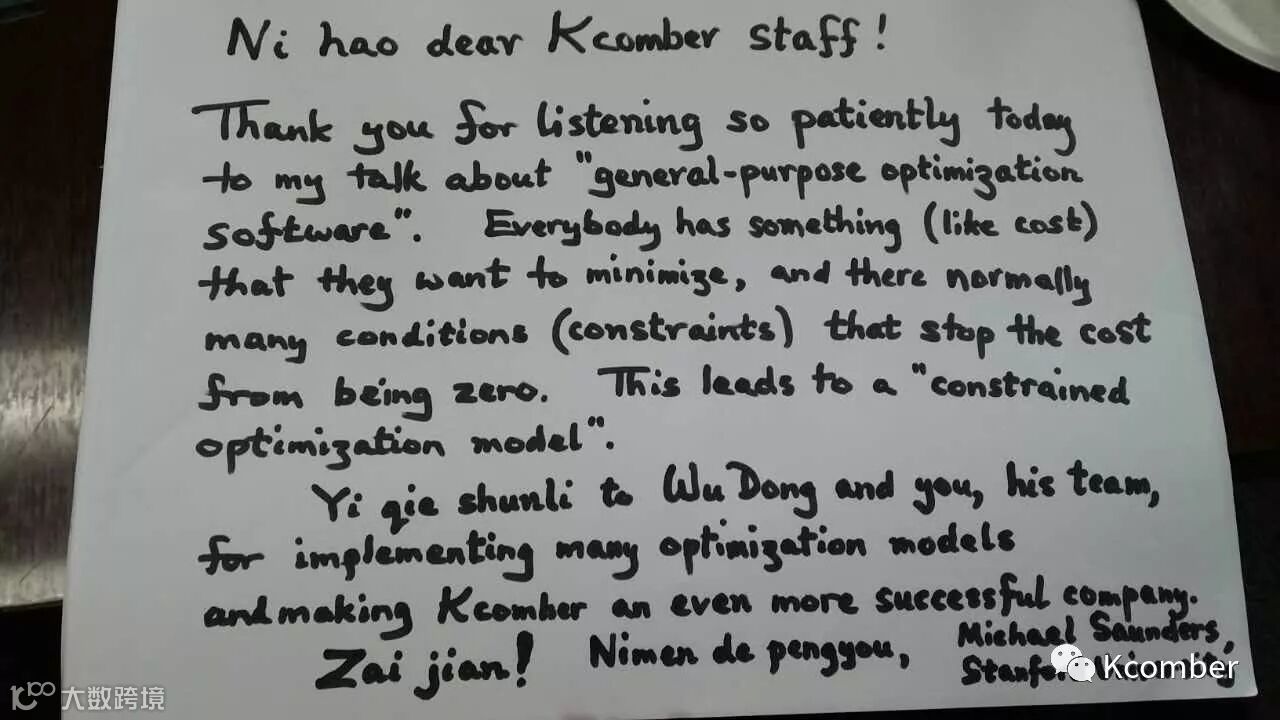 Ni hao dear Kcomber staff!
Thank you for listening so patiently today
to my talk about "general-purpose optimization
software". Everybody has something (like cost)
that they want to minimize, and there normally
many conditions (constraints) that stop the cost
from being zero. This leads to a "constrained
optimization model".
Yi qie shunli to Wu Dong and you, his team,
for implementing many optimization models
and making Kcomber an even more successful company.
Zai jian! Nimen de pengyou, Michael Saunders,
Stanford University
Kcomber
大数跨境